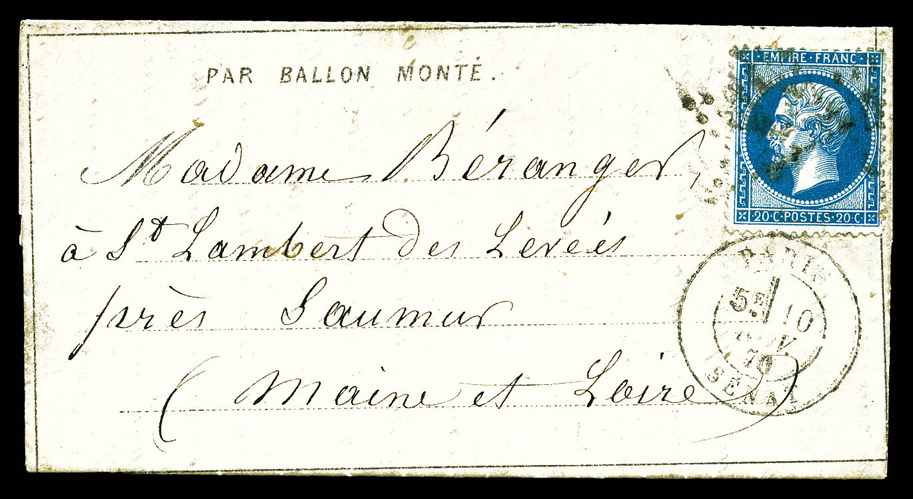 PAR BALLON MONTÉ.
EMPIRE·FRANC·
20·C·POSTES·20·C
Madame Béranger
à St Lambert des Levées
près Saumur
(Maine et Loire)
PARIS
5E 10
NOV
70
SENAT